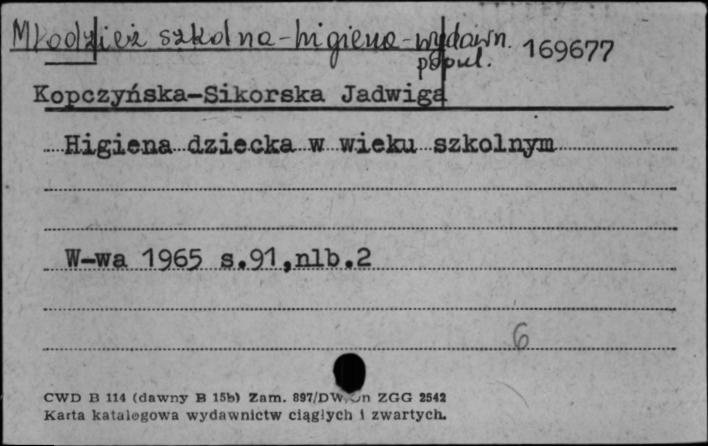 Młodzież szkolna - higiena - wydawn. popul.
169677
Kopczyńska-Sikorska Jadwiga
Higiena dziecka w wieku szkolnym
W-wa 1965 s.91,nlb.2
6
CWD B 114 (dawny B 15b) Zam. 897/DW/Jn ZGG 2542
Karta katalogowa wydawnictw ciągłych i zwartych.